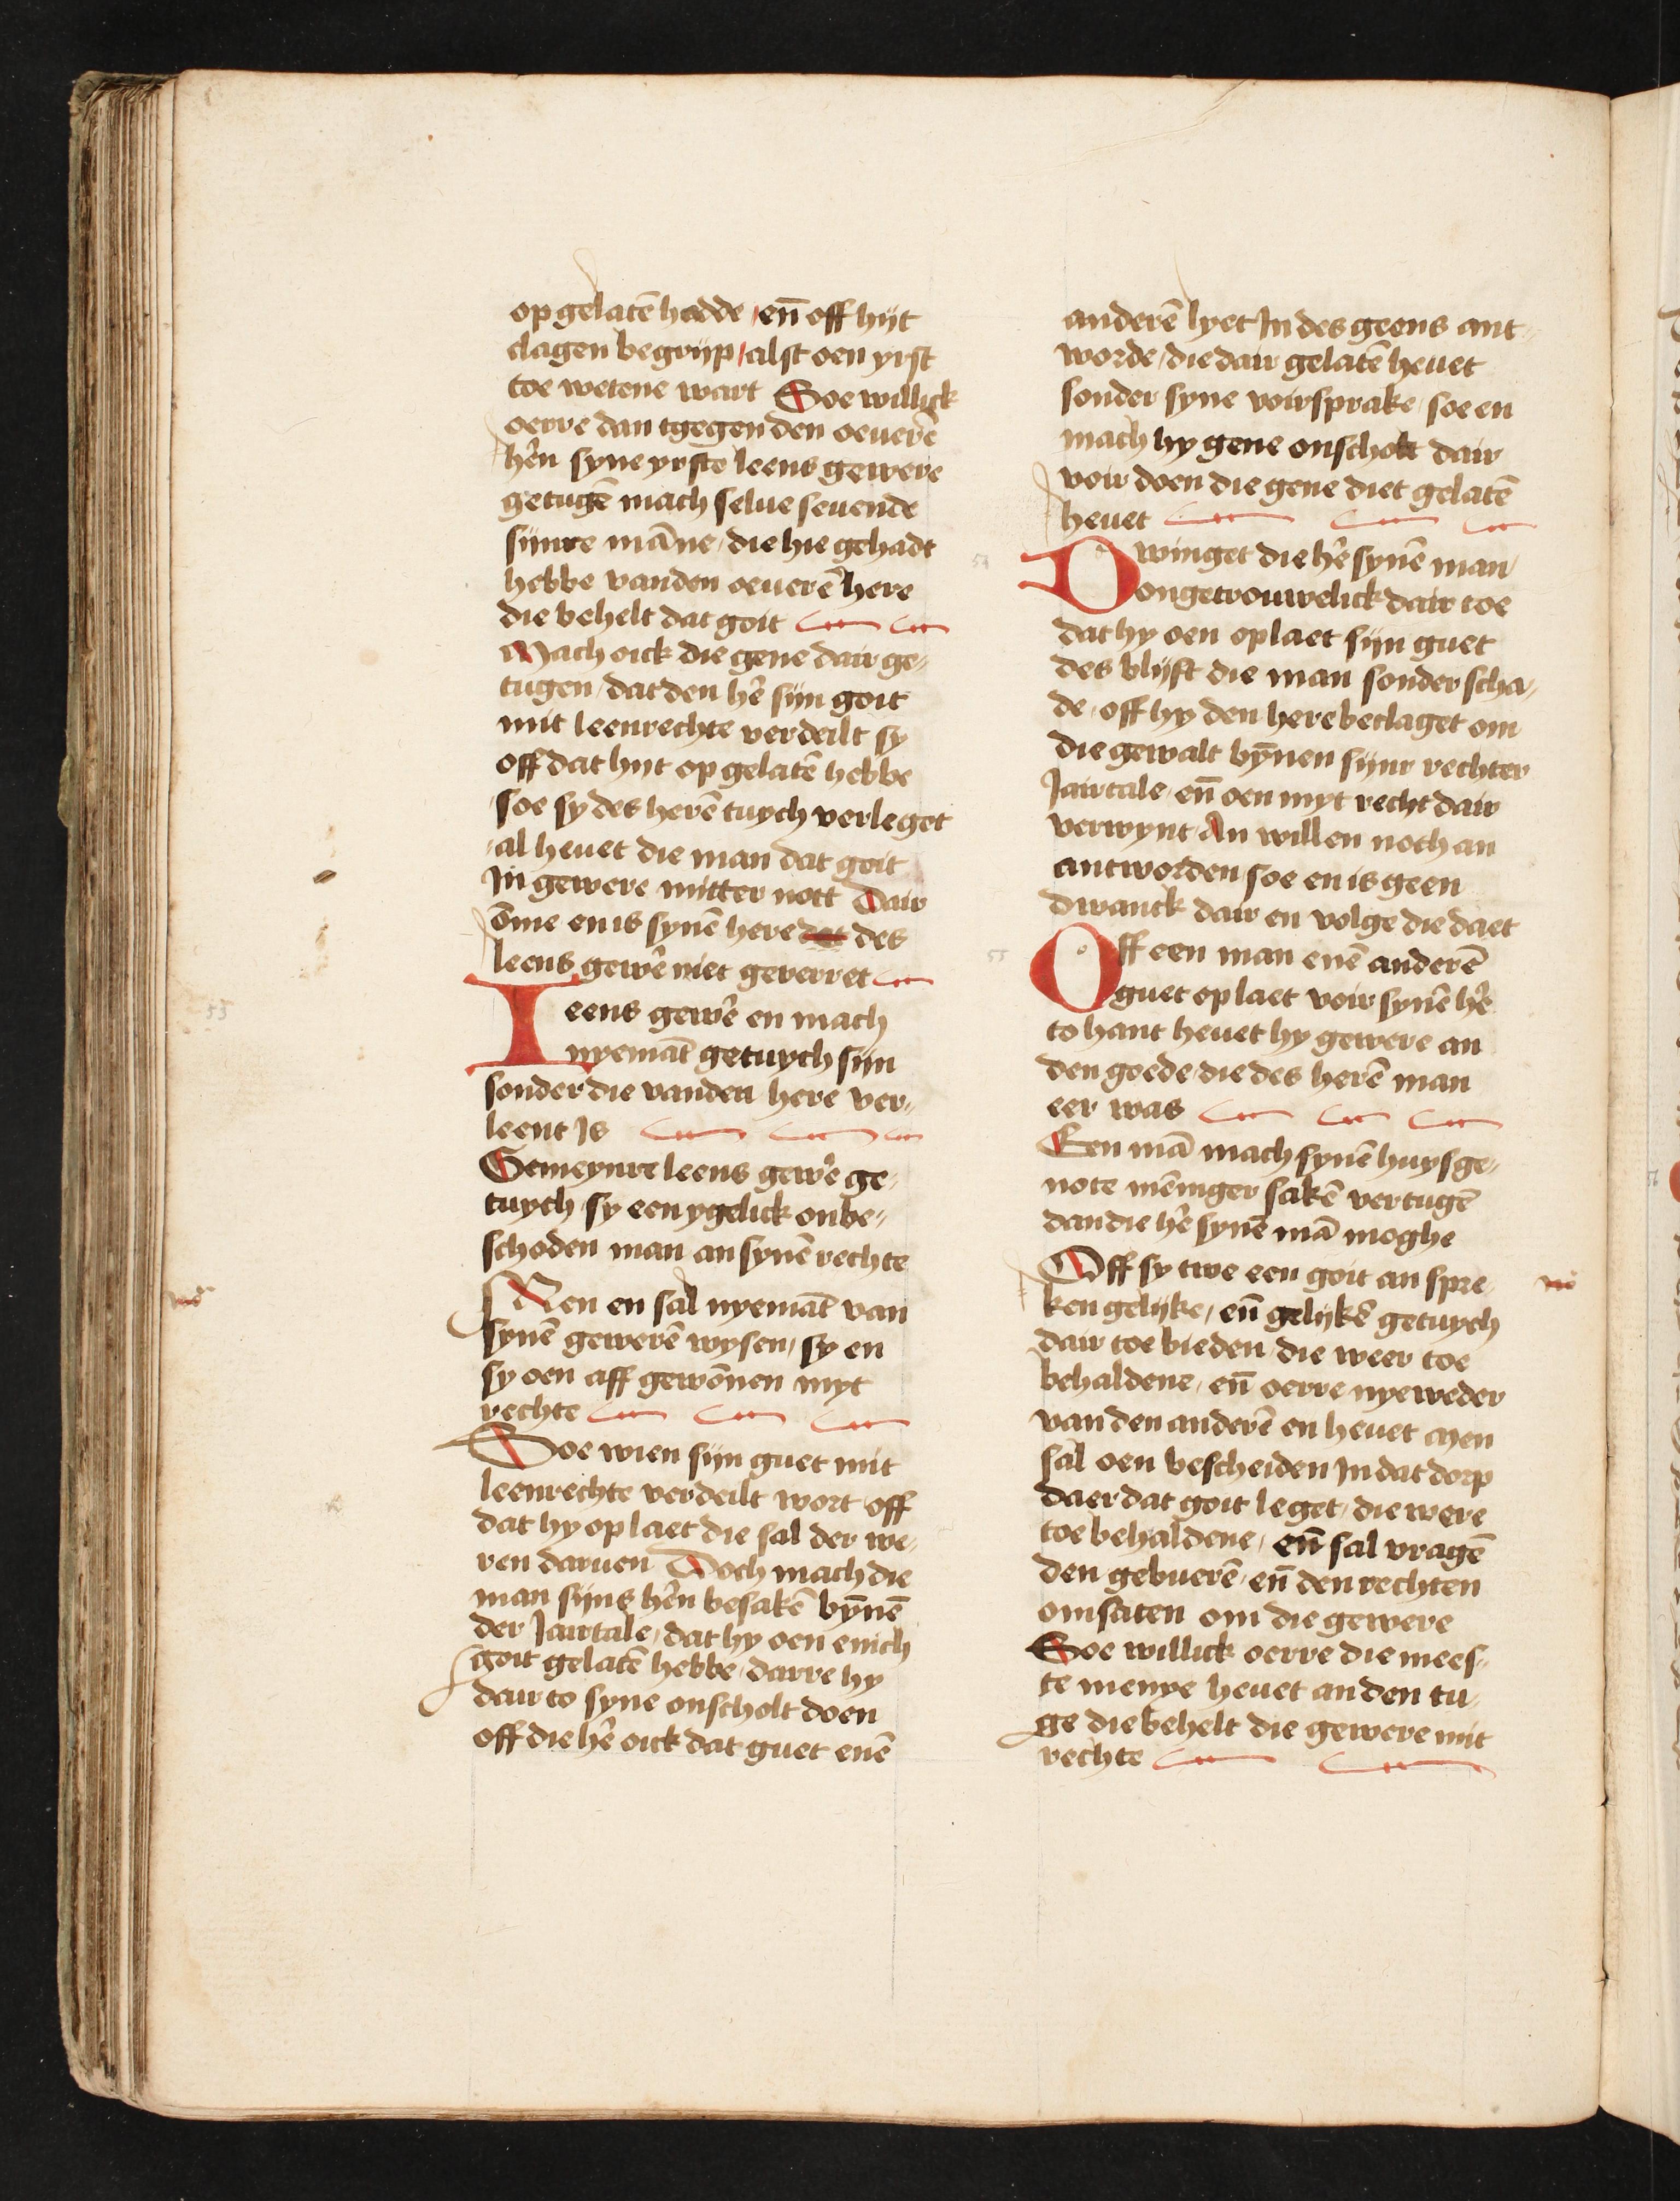 op gelatē hadde / eñ off hijt
clagen begrijp / alst oen yrst
toe wetene wart Soe willick
oerre dan tgegen den oeuerē
hēn syne yrste leens gewere
getugē mach selue seuende
sijnre māne / die hie gehadt
hebbe vanden oeuerē here
die behelt dat goit
Mach oick die gene dair ge-
tugen / dat den hē sijn goit
mit leenrechte verdeilt sy
off dat hijt op gelatē hebbe
soe sy des herē tuych verleget
al heuet die man dat goit
In gewere mitter nott Dair
ōme en is synē here dat des
leens gewē niet geverret
53
I eens gewē en mach
nyemāt getuych sijn
sonder die vanden here ver-
leent Is
Gemeynre leens gewē ge-
tuych sy een ygelick onbe-
schoden man an synē rechte
Men en sal nyemāt van
synē gewerē wysen / sy en
sy oen aff gewōnen myt
rechte
Soe wien sijn guet mit
leenrechte verdeilt wort off
dat hy op laet die sal der we-
ren daruen Doch mach die
man sijns hēn besakē bȳnē
der Jairtale / dat hy oen enich
goit gelatē hebbe / darre hy
dair to syne onscholt doen
off die hē oick dat guet enē
anderē lyet In des geens ant-
worde / die dair gelatē heuet
sonder syne voirsprake / soe en
mach hy gene onscholt dair
voir doen die gene diet gelatē
heuet
54
Dwinget die hē synē man
ongetrouwelick dair toe
dat hy oen oplaet sijn guet
des blijft die man sonder scha-
de / off hy den here beclaget om
die gewalt bȳnen sijnr rechter
Jairtale / eñ oen myt recht dair
verwynt An willen noch an
antworden soe en is geen
dwanck dair en volge die daet
55
Off een man enē anderē
guet oplaet voir synē hē
to hant heuet hy gewere an
den goede / die des herē man
eer was
Een mā mach synē huysge-
note mēniger sakē vertugē
dan die hē synē mā moghe
Off sy twe een goit an spre-
ken gelijke / eñ gelijkē getuych
dair toe bieden / die weer toe
behaldene / eñ oerre nyeweder
van den anderē en heuet Men
sal oen bescheiden In dat dorp
daer dat goit leget / die were
toe behaldene / eñ sal vragē
den gebuerē / eñ den rechten
omsaten om die gewere
Soe willick oerre die mees-
te menye heuet an den tu-
ge die behelt die gewere mit
rechte